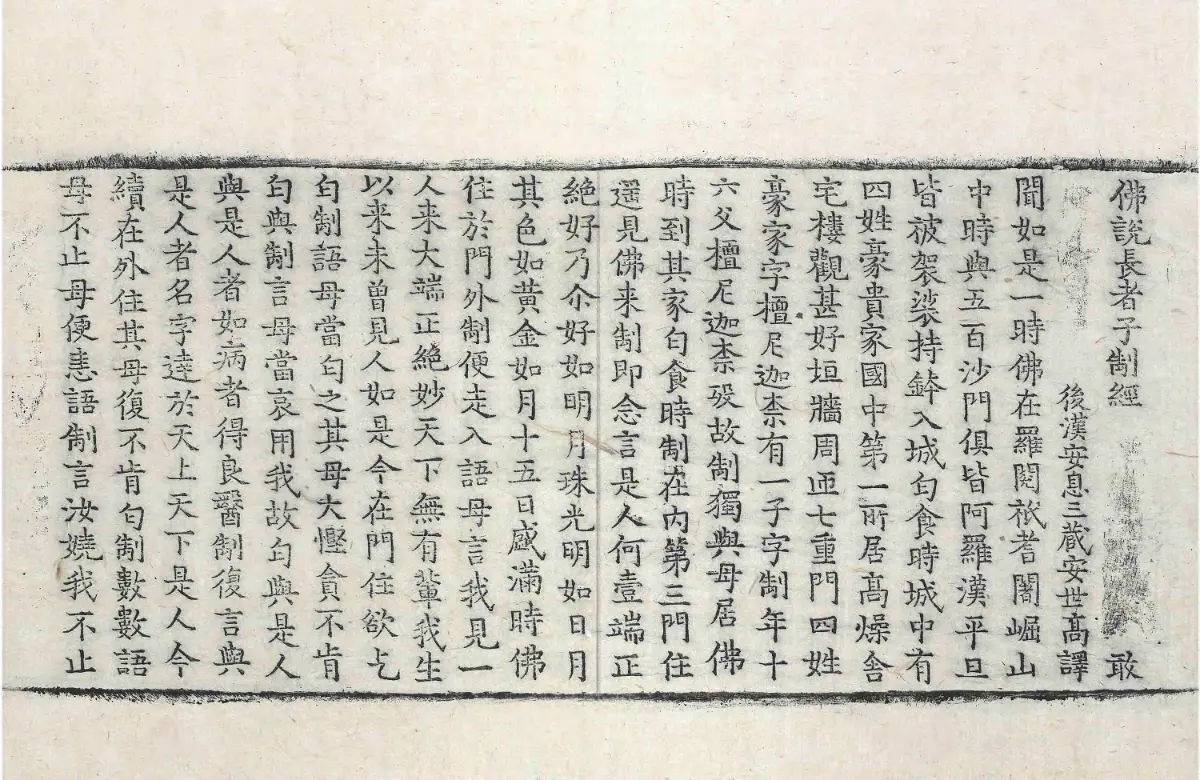 佛說長者子制經 敢
後漢安息三藏安世高譯
聞如是一時佛在羅閱祇耆闍崛山
中時與五百沙門俱皆阿羅漢平旦
皆被袈裟持鉢入城匄食時城中有
四姓豪貴家國中第一所居高燥舍
宅樓觀甚好垣牆周迊七重門四姓
豪家字檀尼迦柰有一子字制年十
六父檀尼迦柰歿故制獨與母居佛
時到其家匄食時制在內第三門住
遥見佛来制即念言是人何壹端正
絶好乃尒好如明月珠光明如日月
其色如黃金如月十五日盛滿時佛
住於門外制便走入語母言我見一
人来大端正絶妙天下無有輩我生
以来未曾見人如是今在門住欲乞
匄制語母當匄之其母大慳貪不肯
匄與制言母當哀用我故匄與是人
與是人者如病者得良醫制復言與
是人者名字達於天上天下是人今
續在外住其母復不肯匄制數數語
母不止母便恚語制言汝嬈我不止